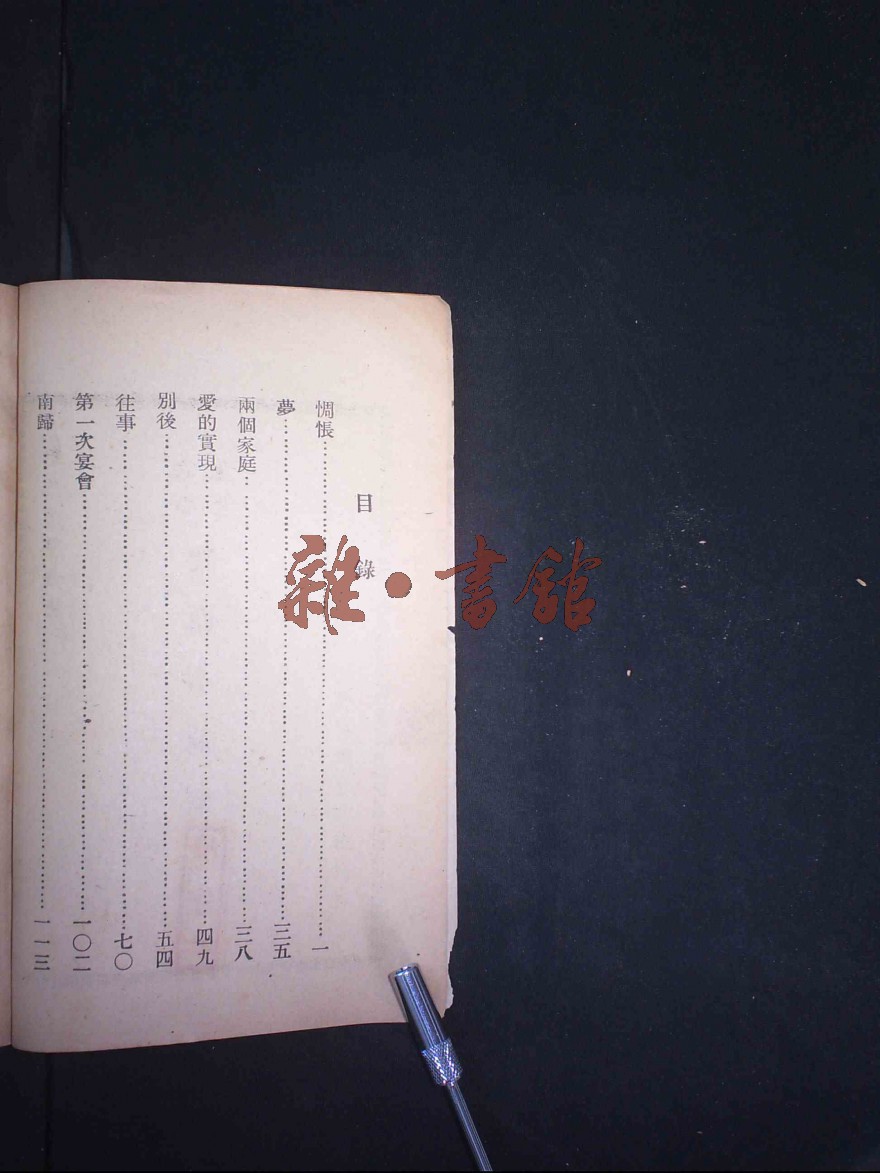 目錄
惆悵⋯⋯⋯⋯⋯⋯一
夢⋯⋯⋯⋯⋯⋯三五
兩個家庭⋯⋯⋯⋯⋯⋯三八
愛的實現⋯⋯⋯⋯⋯⋯四九
別後⋯⋯⋯⋯⋯⋯五四
往事⋯⋯⋯⋯⋯⋯七〇
第一次宴會⋯⋯⋯⋯⋯⋯一〇二
南歸⋯⋯⋯⋯⋯⋯一一三
雜•書館